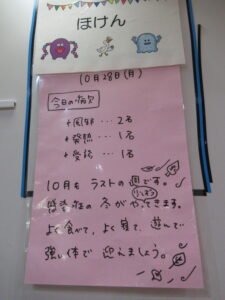 ほけん
10月28日(月)
今日の病欠
+風邪…2名
+発熱…1名
+受診…1名
10月も ラストの週です。
感染症の 冬がやってきます。
よく食べて、よく寝て、遊んで
強い体で 迎えましょう。